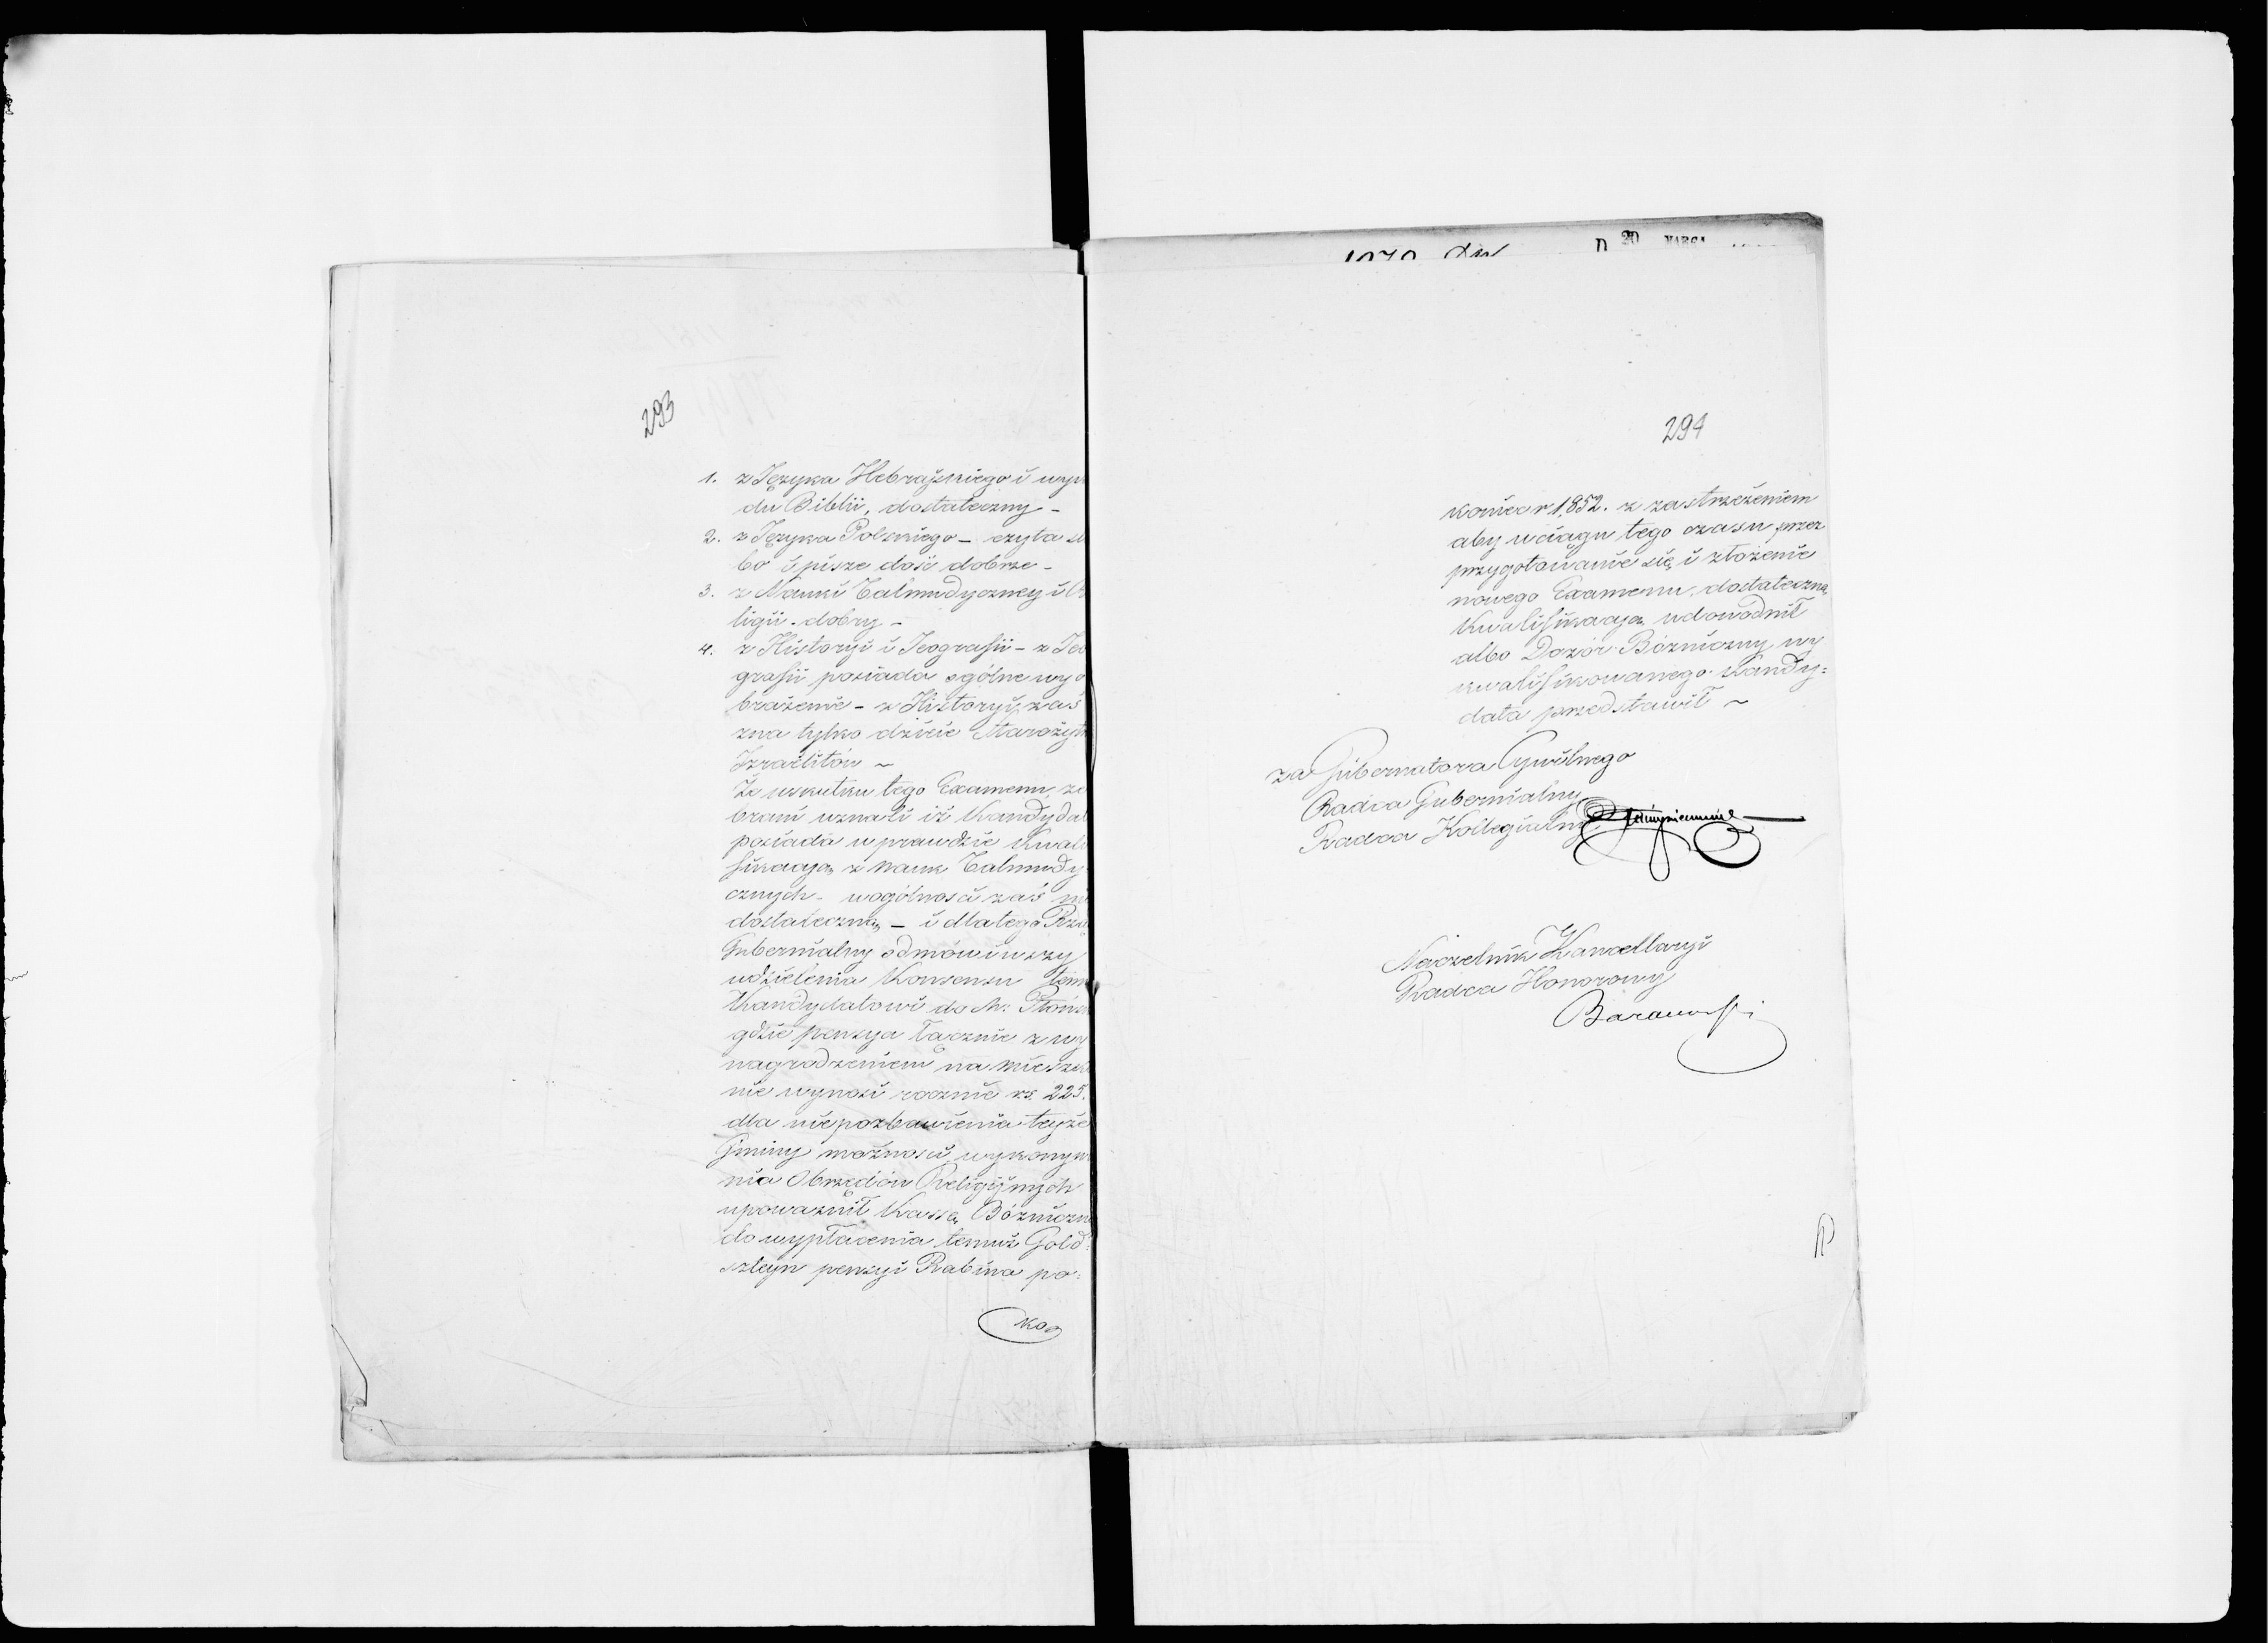 293
1. z Języka Hebrajskiego i wyk
du Biblii, dostateczny –
2. z Języka Polskiego – czyta sł
bo i pisze dość dobrze –
3. z Nauki Talmudyczney i
ligii – dobry –
4. z Historyi i Jeografii – z Jeo
grafii posiada ogólne wyo
brażenie – z Historyi zaś
zna tylko dzieie Starożyt
Izraelitów ~
Że w skutku tego Examenu, ze
brani uznali iż Kandydat
posiada w prawdzie kwali
fikacyą z nauk Talmudy
cznych – w ogólności zaś nie
dostateczną – i dla tego Rzą
Gubernialny odmówiwszy
udzielenia Konsensu tem
Kandydatowi do M. Płońs
gdzie pensya łącznie z wy
nagrodzeniem na mieszka
nie wynosi rocznie rs. 225.
dla niepozbawienia teyże
Gminy możności wykonyw
nia Obrzędów Religijnych
upoważnił Kassę Bóźniczn
do wypłacenia temuż Gold=
sztejn pensyi Rabina po=
ko
D 20 MARCA
294
koniec r 1852. z zastrzeżeniem
aby w ciągu tego czasu przez
przygotowanie się i złożenie
nowego Examenu, dostateczną
Kwalifikacyą udowodnił
albo Dozór Bóźniczny wy
kwalifikowanego Kandy=
data przedstawił ~
za Gubernatora Cywilnego
Radca Gubernialny
Radca Kollegialny
Naczelnik Kancellaryi
Radca Honorowy
Baranowski